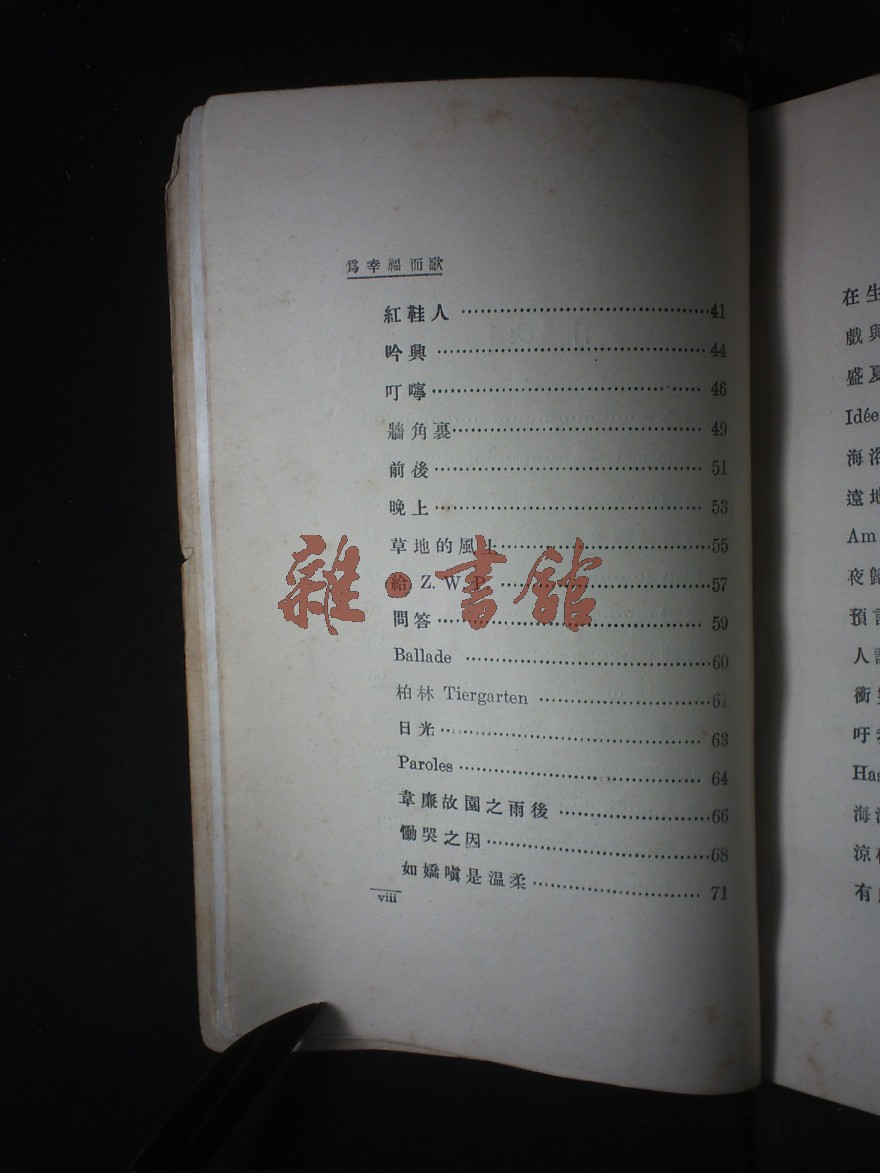 爲幸福而歌
紅鞋人 41
吟興 44
叮嚀 46
牆角裏 49
前後 51
晚上 53
草地的風上 55
給 Z. W. P. 57
問答 59
Ballade 60
柏林 Tiergarten 61
日光 63
Paroles 64
韋廉故園之雨後 66
慟哭之因 68
如嬌嗔是温柔 71
viii
雜·書館
在生
戲與
盛夏
Idée
海浴
遠地
Am
夜歸
預言
人
衝
吁
Has
海
涼
有